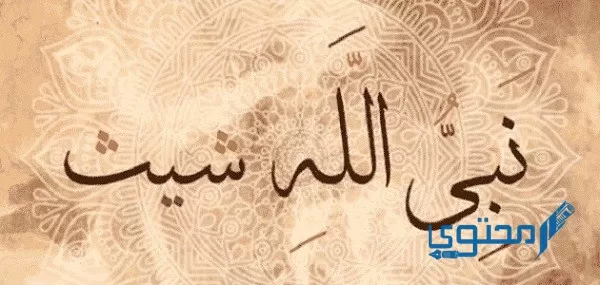 نَبِيُّ اللَّهِ شيث
محتوى